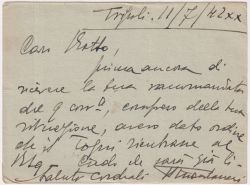 Tripoli. 11/7/42 XX
Caro Ratto,
prima ancora di
ricevere la tua raccomandata
del 9 corr.,  della tua
situazione, avevo dato ordine
che il  rientrasse al
 Credo che  già lì
Saluti cordiali